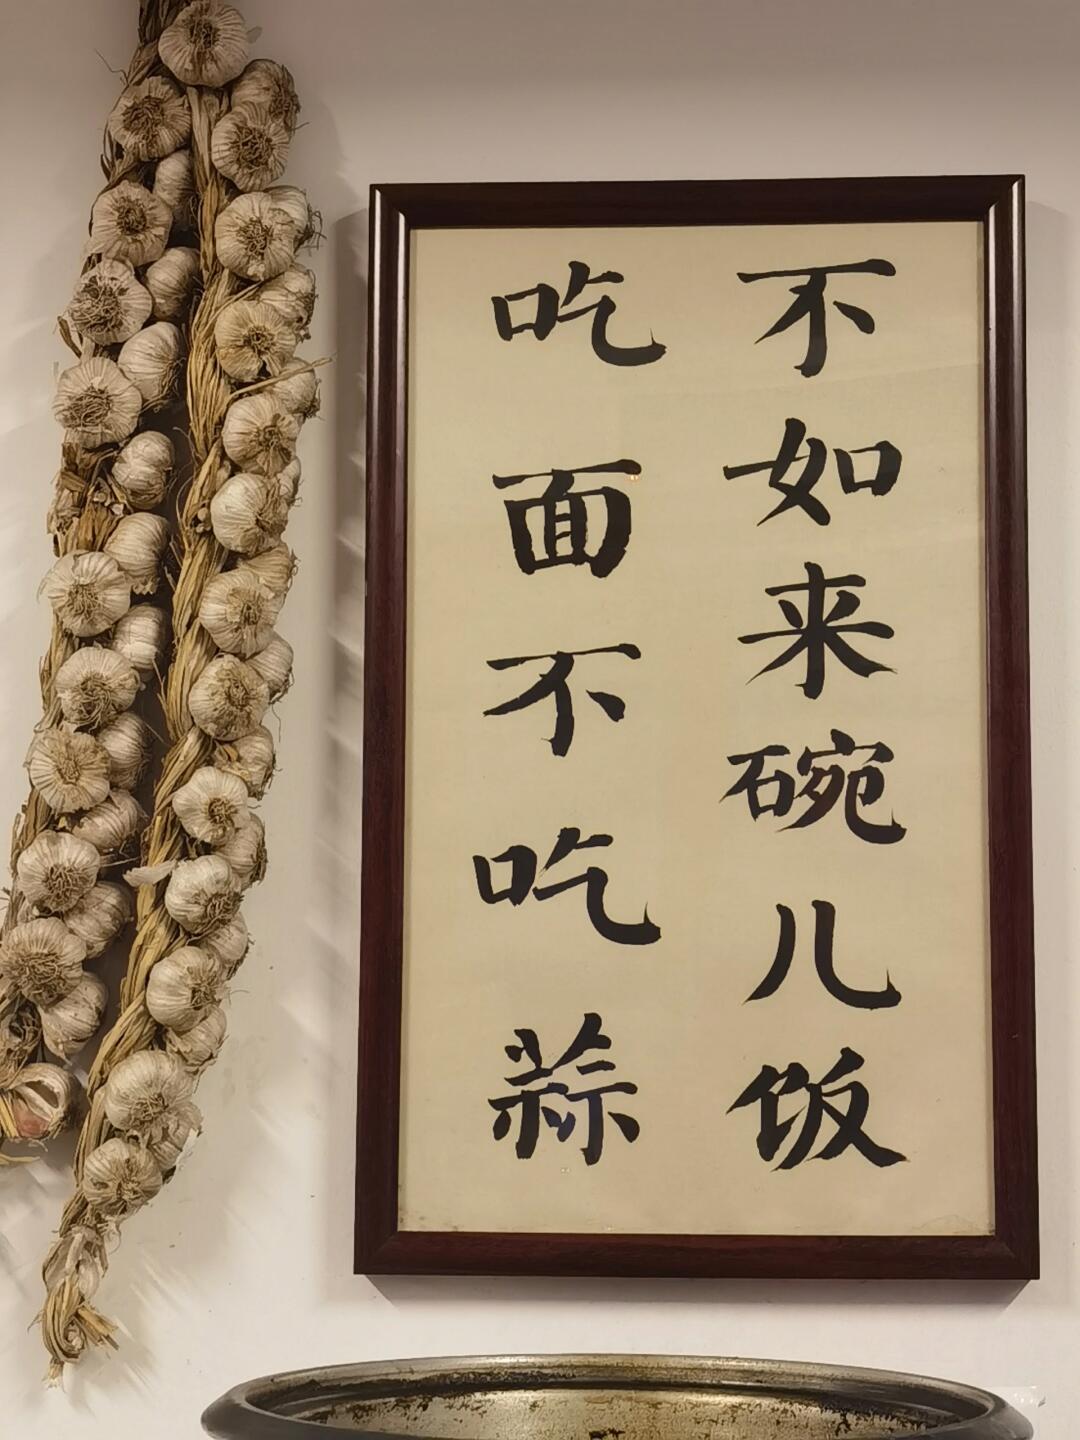 吃面不吃蒜
不如来碗儿饭